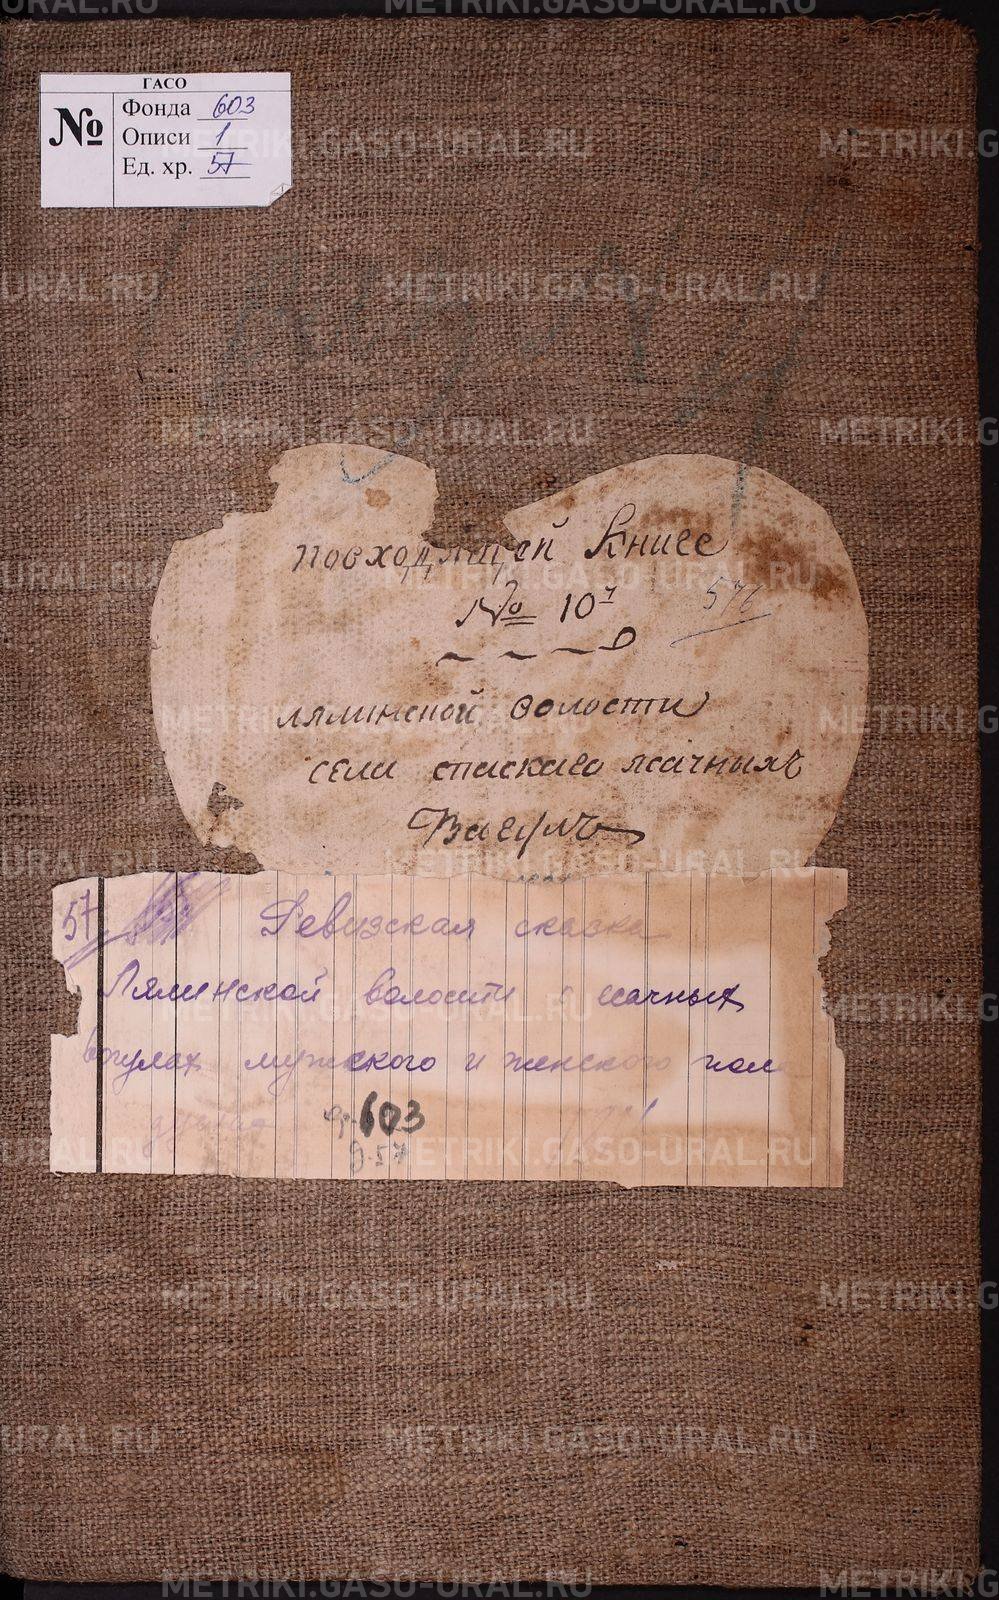 ГАСО
№
Фонда 603
Описи 1
Ед. хр. 57
повходящей Книге
№ 107
576
лялинской волости
села спаскаго ясачныхъ
Вагулъ
57 Ревизская сказка
Лялинской волости о ясачных
вогулах мужского и женского пола
ф. 603
д. 57
METRIKI.GASO-URAL.RU